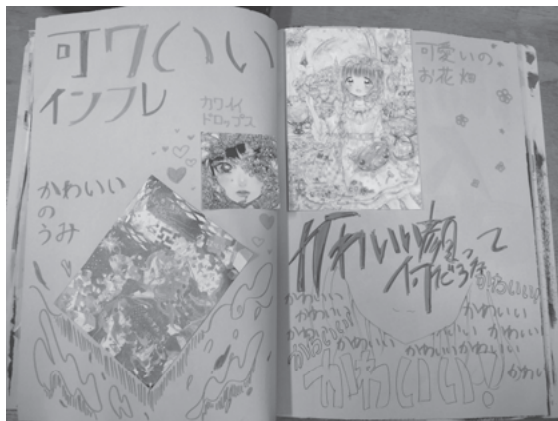 可ワいい
インフレ
カワイイ
ドロップス
かわいい
の
うみ
可愛いの
お花畑
かわいい顔って
何だろうな
かわいい
かわいい
かわいい
かわいい
かわいい
かわいい
かわいい
かわいい
かわいい
かわいい
かわいい!
かわいい